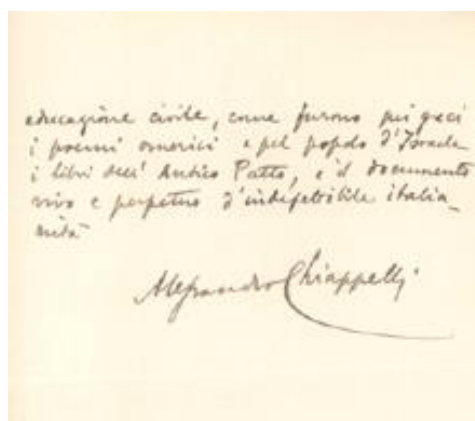 educazione civile, come furono pei greci
i poemi omerici e pel popolo d'Israele
i libri dell' Antico Patto, e il documento
vivo e perpetuo d'indefettibile italia_
nità
Alessandro Chiappelli